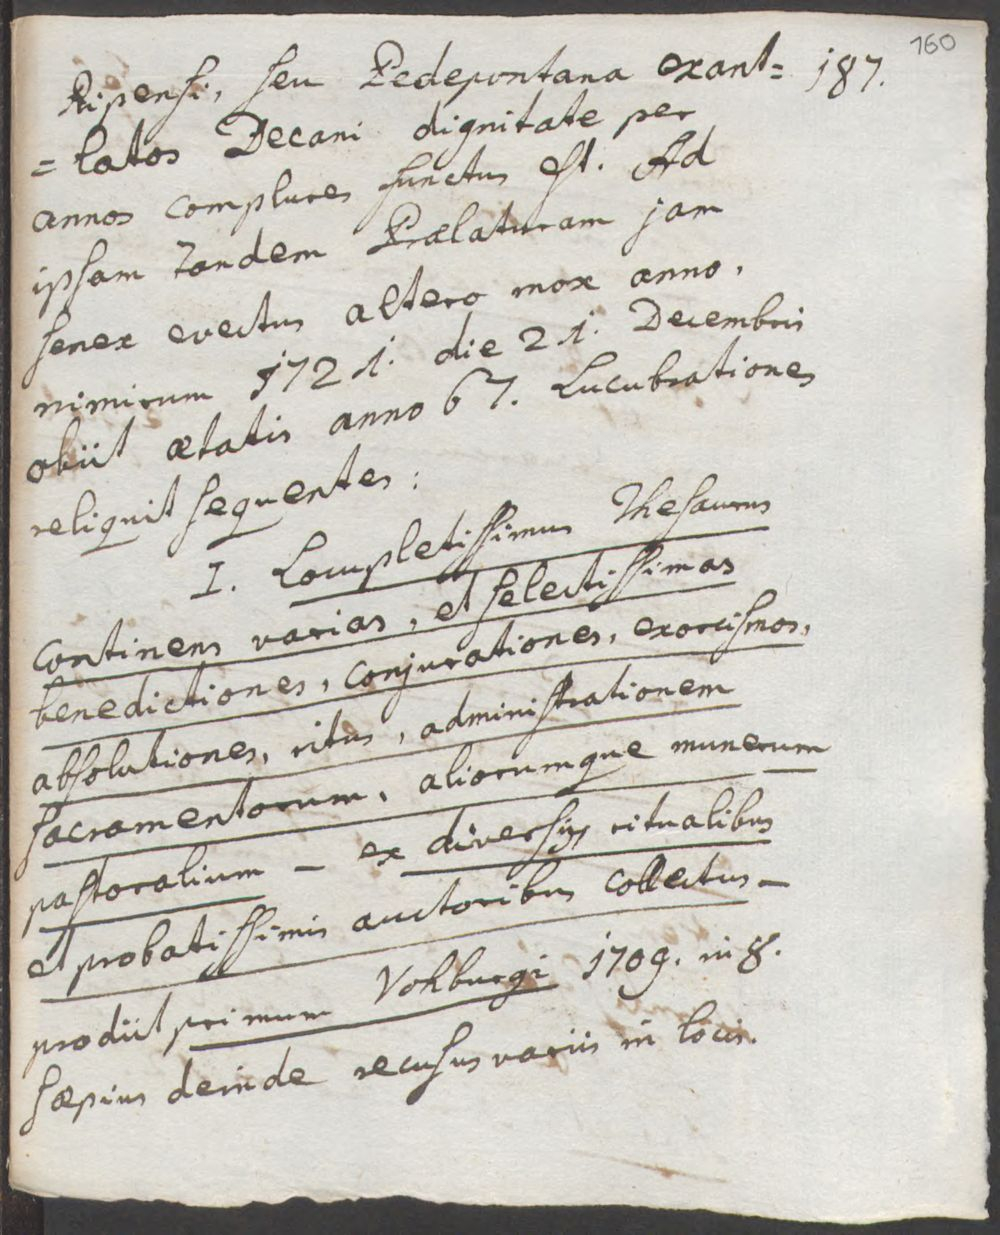 160
Ripensi, seu Pedepontana exant= 187.
=latos Decani dignitate per
annos complures functus est. Ad
ipsam tandem Prælaturam jam
senex evectus altero mox anno,
nimirum 1721. die 21. Decembris
obiit ætatis anno 67. Lucubrationes
reliquit sequentes:
I. Locupletissimus Thesaurus
continens varias, et selectissimas
benedictiones, conjurationes, exorcismos,
absolutiones, ritus, administrationem
sacramentorum, aliorumque munerum
pastoralium – ex diversis ritualibus
et probatissimis auctoribus collectus –
prodiit primum Vohburgi 1709. in 8.
sæpius deinde recusus variis in locis.